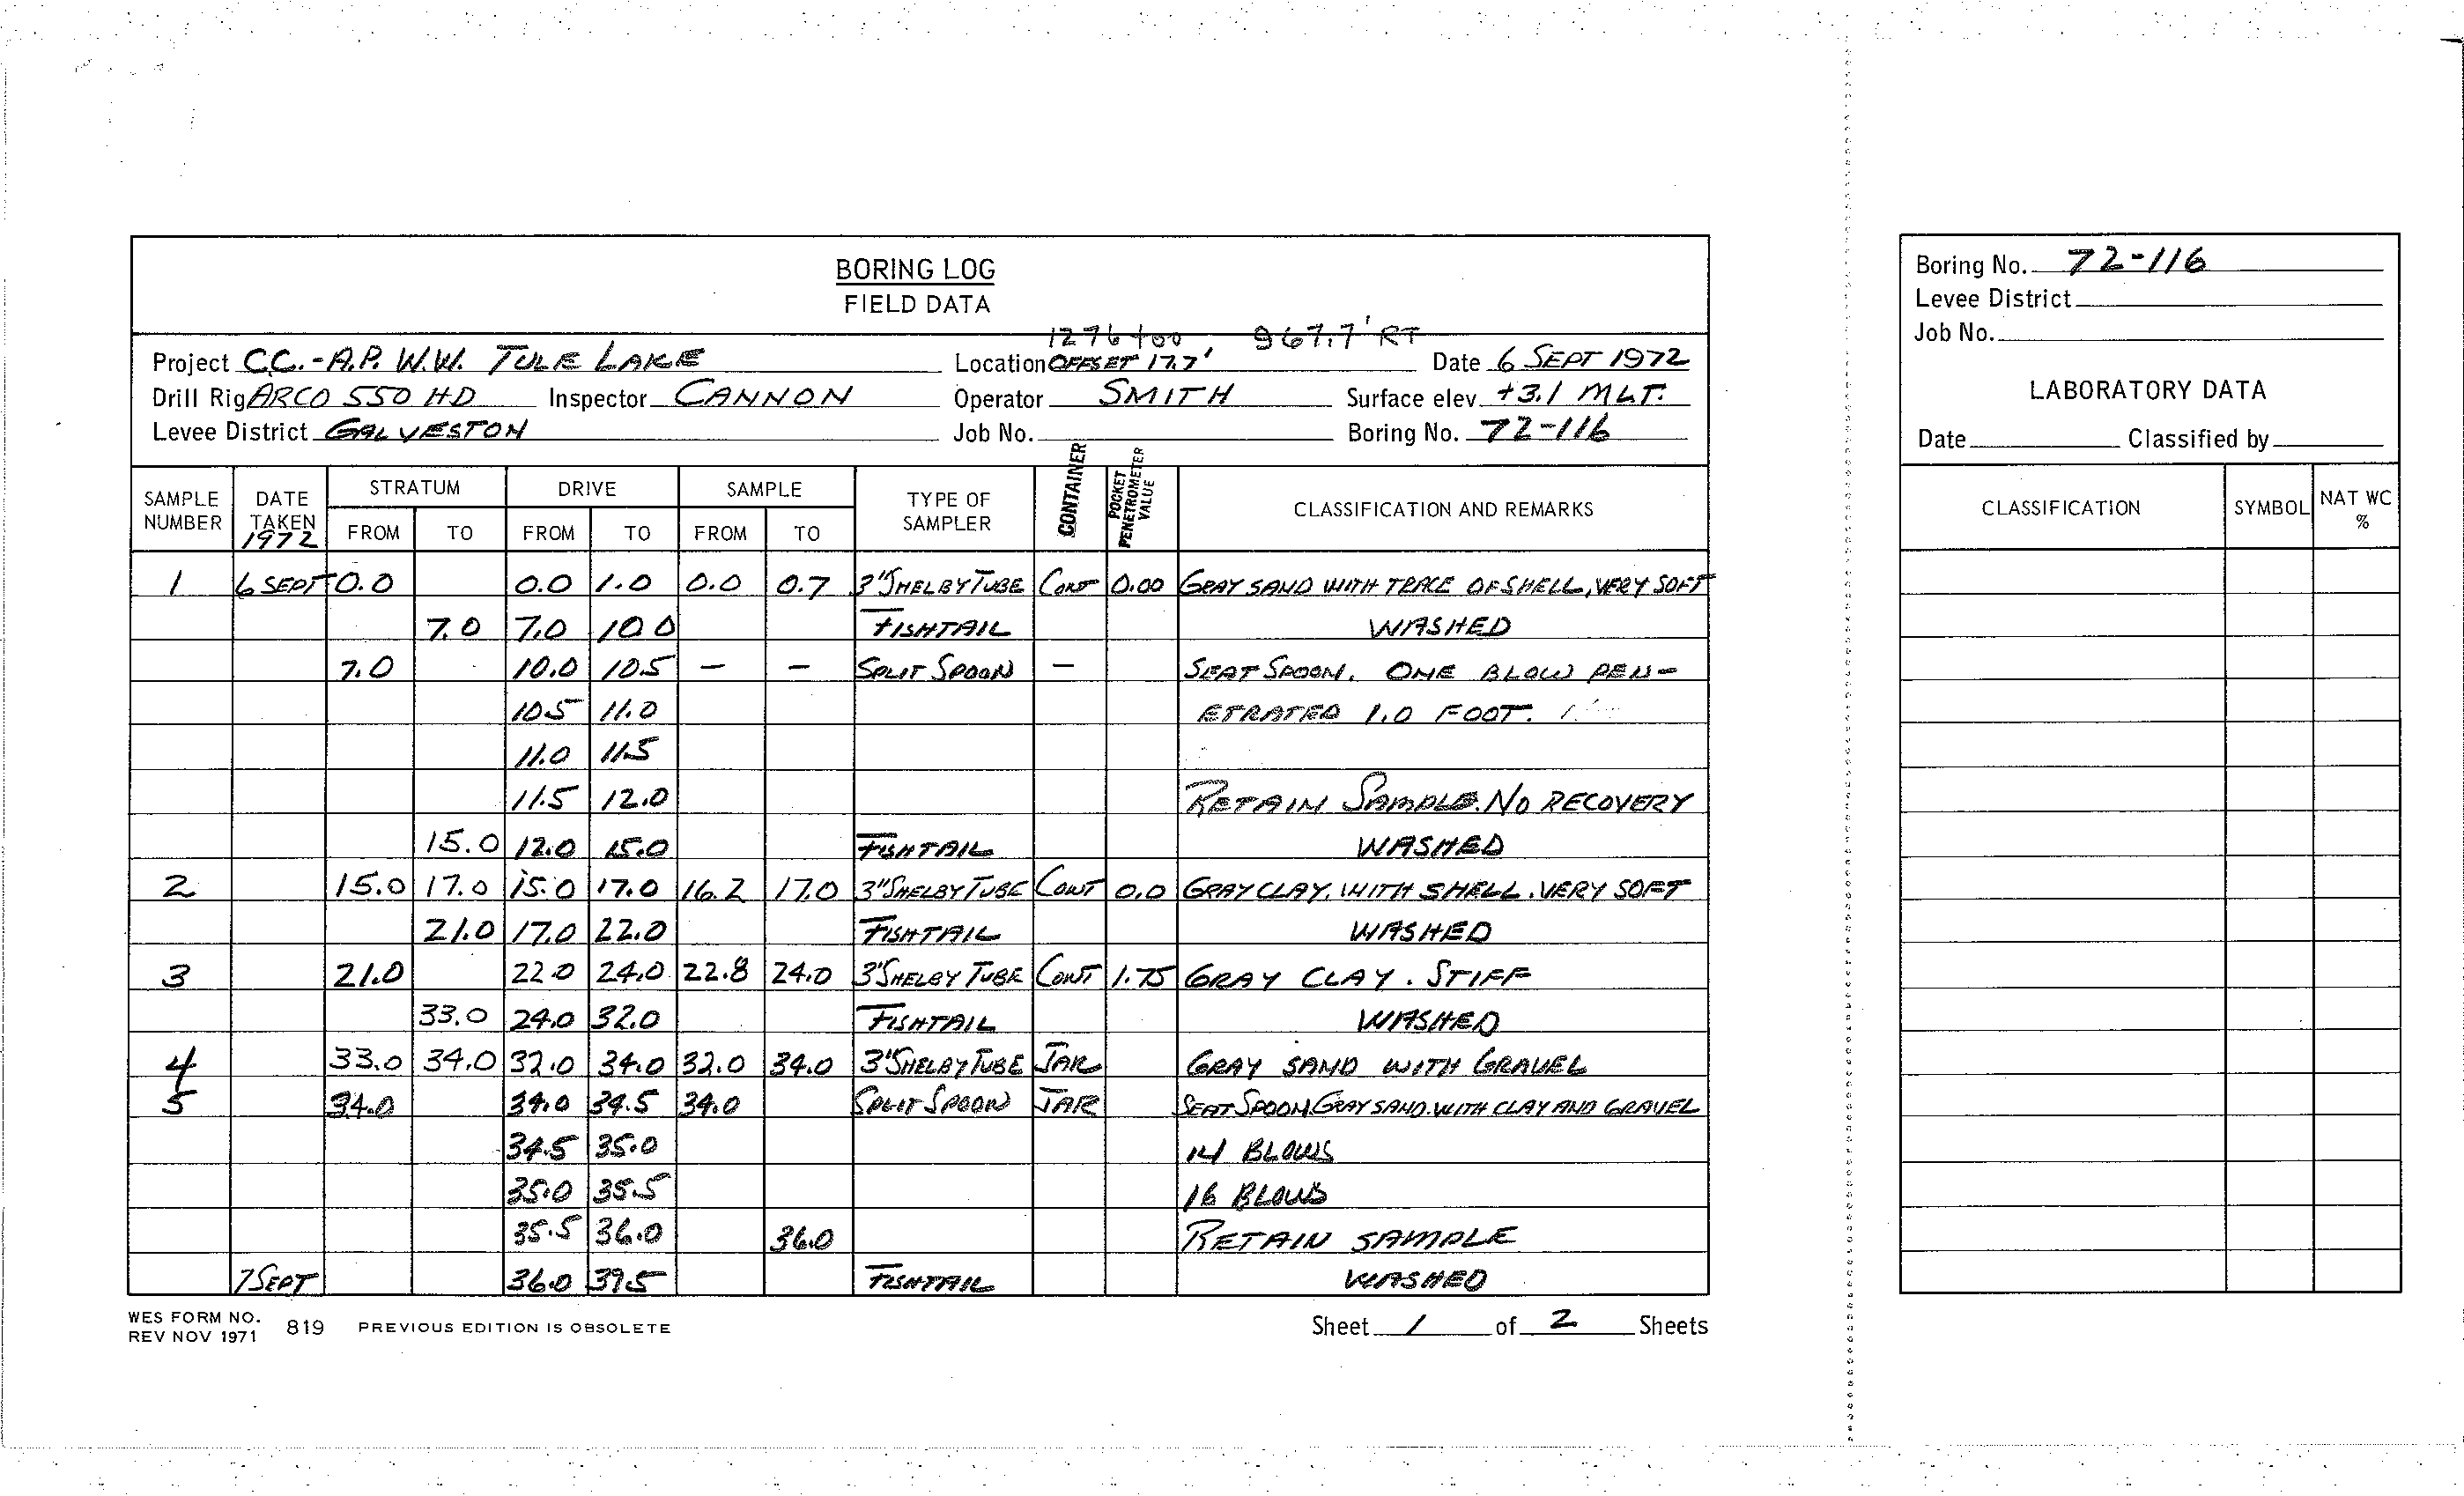 BORING LOG
FIELD DATA
1276+00 967.7' RT
Project C.C.-A.P. W.W. TULE LAKE Location OFFSET 17.7' Date 6 SEPT 1972
Drill Rig ARCO 550 HD Inspector CANNON Operator SMITH Surface elev. +3.1 MLT.
Levee District GALVESTON Job No. Boring No. 72-116
SAMPLE NUMBER DATE TAKEN 1972 STRATUM FROM TO DRIVE FROM TO SAMPLE FROM TO TYPE OF SAMPLER CONTAINER POCKET PENETROMETER VALUE CLASSIFICATION AND REMARKS
1 6 SEPT 0.0 0.0 1.0 0.0 0.7 3" SHELBY TUBE CONT 0.00 GRAY SAND WITH TRACE OF SHELL, VERY SOFT
7.0 7.0 10.0 FISHTAIL WASHED
7.0 10.0 10.5 - - SPLIT SPOON - SEAT SPOON. ONE BLOW PEN-
10.5 11.0 ETRATED 1.0 FOOT.
11.0 11.5
11.5 12.0 RETAIN SAMPLE. NO RECOVERY
15.0 12.0 15.0 FISHTAIL WASHED
2 15.0 17.0 15.0 17.0 16.2 17.0 3" SHELBY TUBE CONT 0.0 GRAY CLAY, WITH SHELL. VERY SOFT
21.0 17.0 22.0 FISHTAIL WASHED
3 21.0 22.0 24.0 22.8 24.0 3" SHELBY TUBE CONT 1.75 GRAY CLAY. STIFF
33.0 24.0 32.0 FISHTAIL WASHED
4 33.0 34.0 32.0 34.0 32.0 34.0 3" SHELBY TUBE JAR GRAY SAND WITH GRAVEL
5 34.0 34.0 34.5 34.0 SPLIT SPOON JAR SEAT SPOON GRAY SAND. WITH CLAY AND GRAVEL
34.5 35.0 14 BLOWS
35.0 35.5 16 BLOWS
35.5 36.0 36.0 RETAIN SAMPLE
7 SEPT 36.0 39.5 FISHTAIL WASHED
WES FORM NO. 819 PREVIOUS EDITION IS OBSOLETE
REV NOV 1971
Sheet 1 of 2 Sheets
Boring No. 72-116
Levee District
Job No.
LABORATORY DATA
Date Classified by
CLASSIFICATION SYMBOL NAT WC %